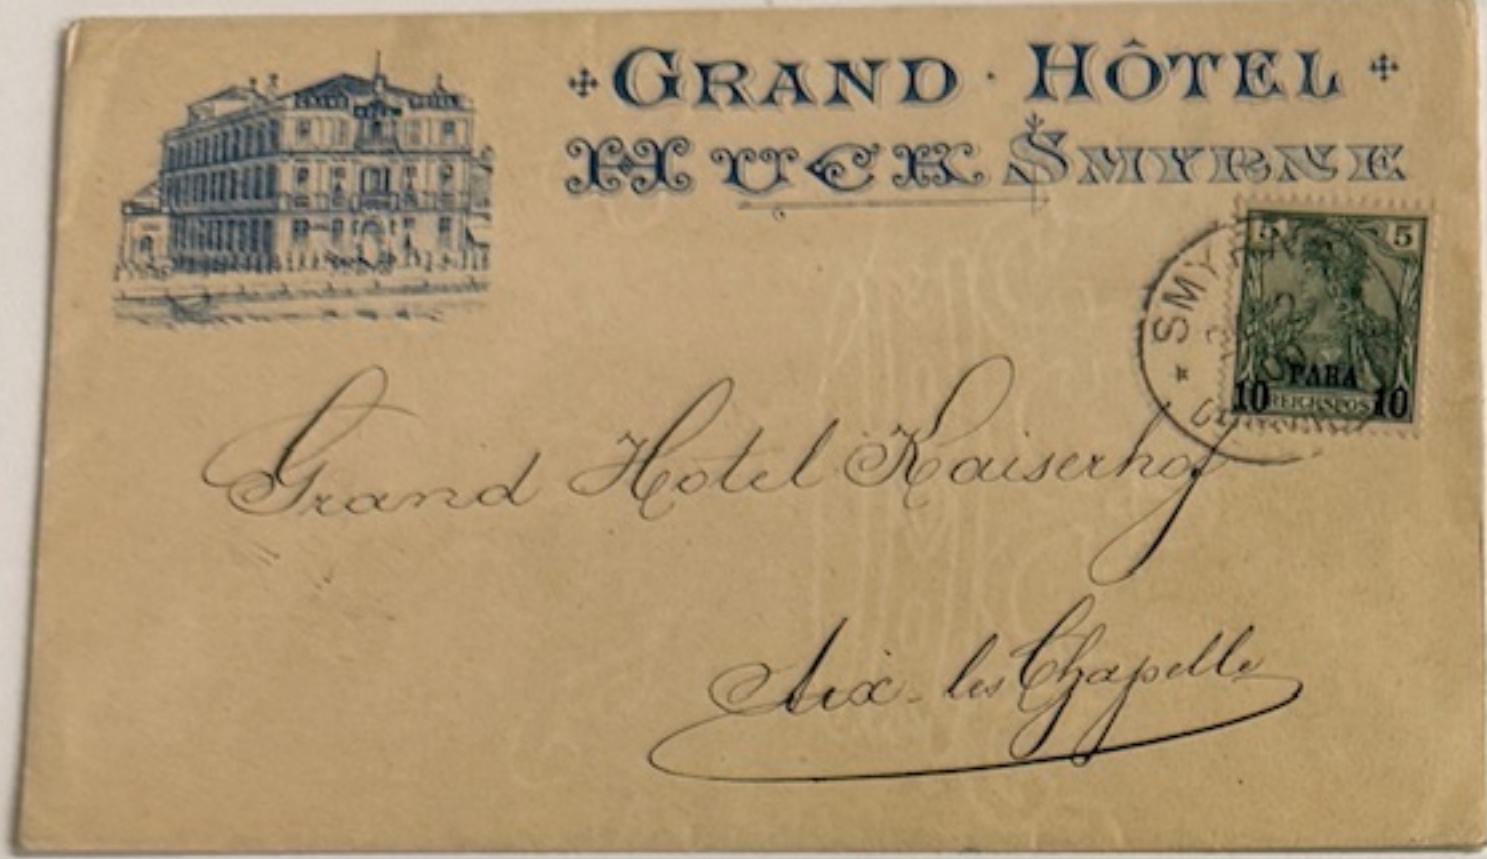 GRAND · HÔTEL
HUCK SMYRNE
SMYRNA
5 5
10 PARA 10
REICHSPOST
Grand Hotel Kaiserhof
Aix-les Chapelle